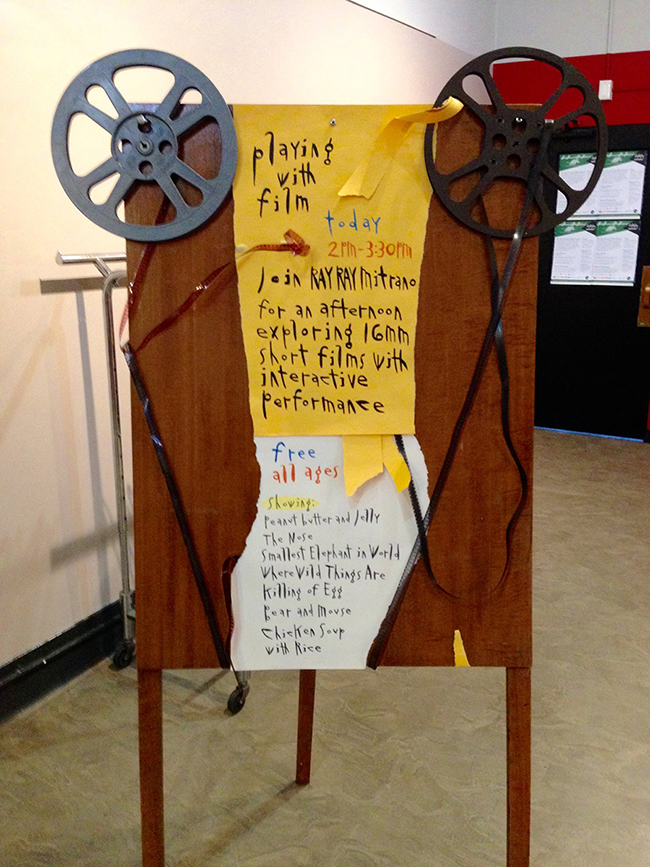 playing
with
film
today
2PM-3:30PM
Join RAY RAY Mitrano
for an afternoon
exploring 16mm
short films with
interactive
performance
free
all ages
showing:
Peanut butter and Jelly
The Nose
Smallest Elephant in World
Where Wild Things Are
Killing of Egg
Bear and Mouse
Chicken Soup
with Rice